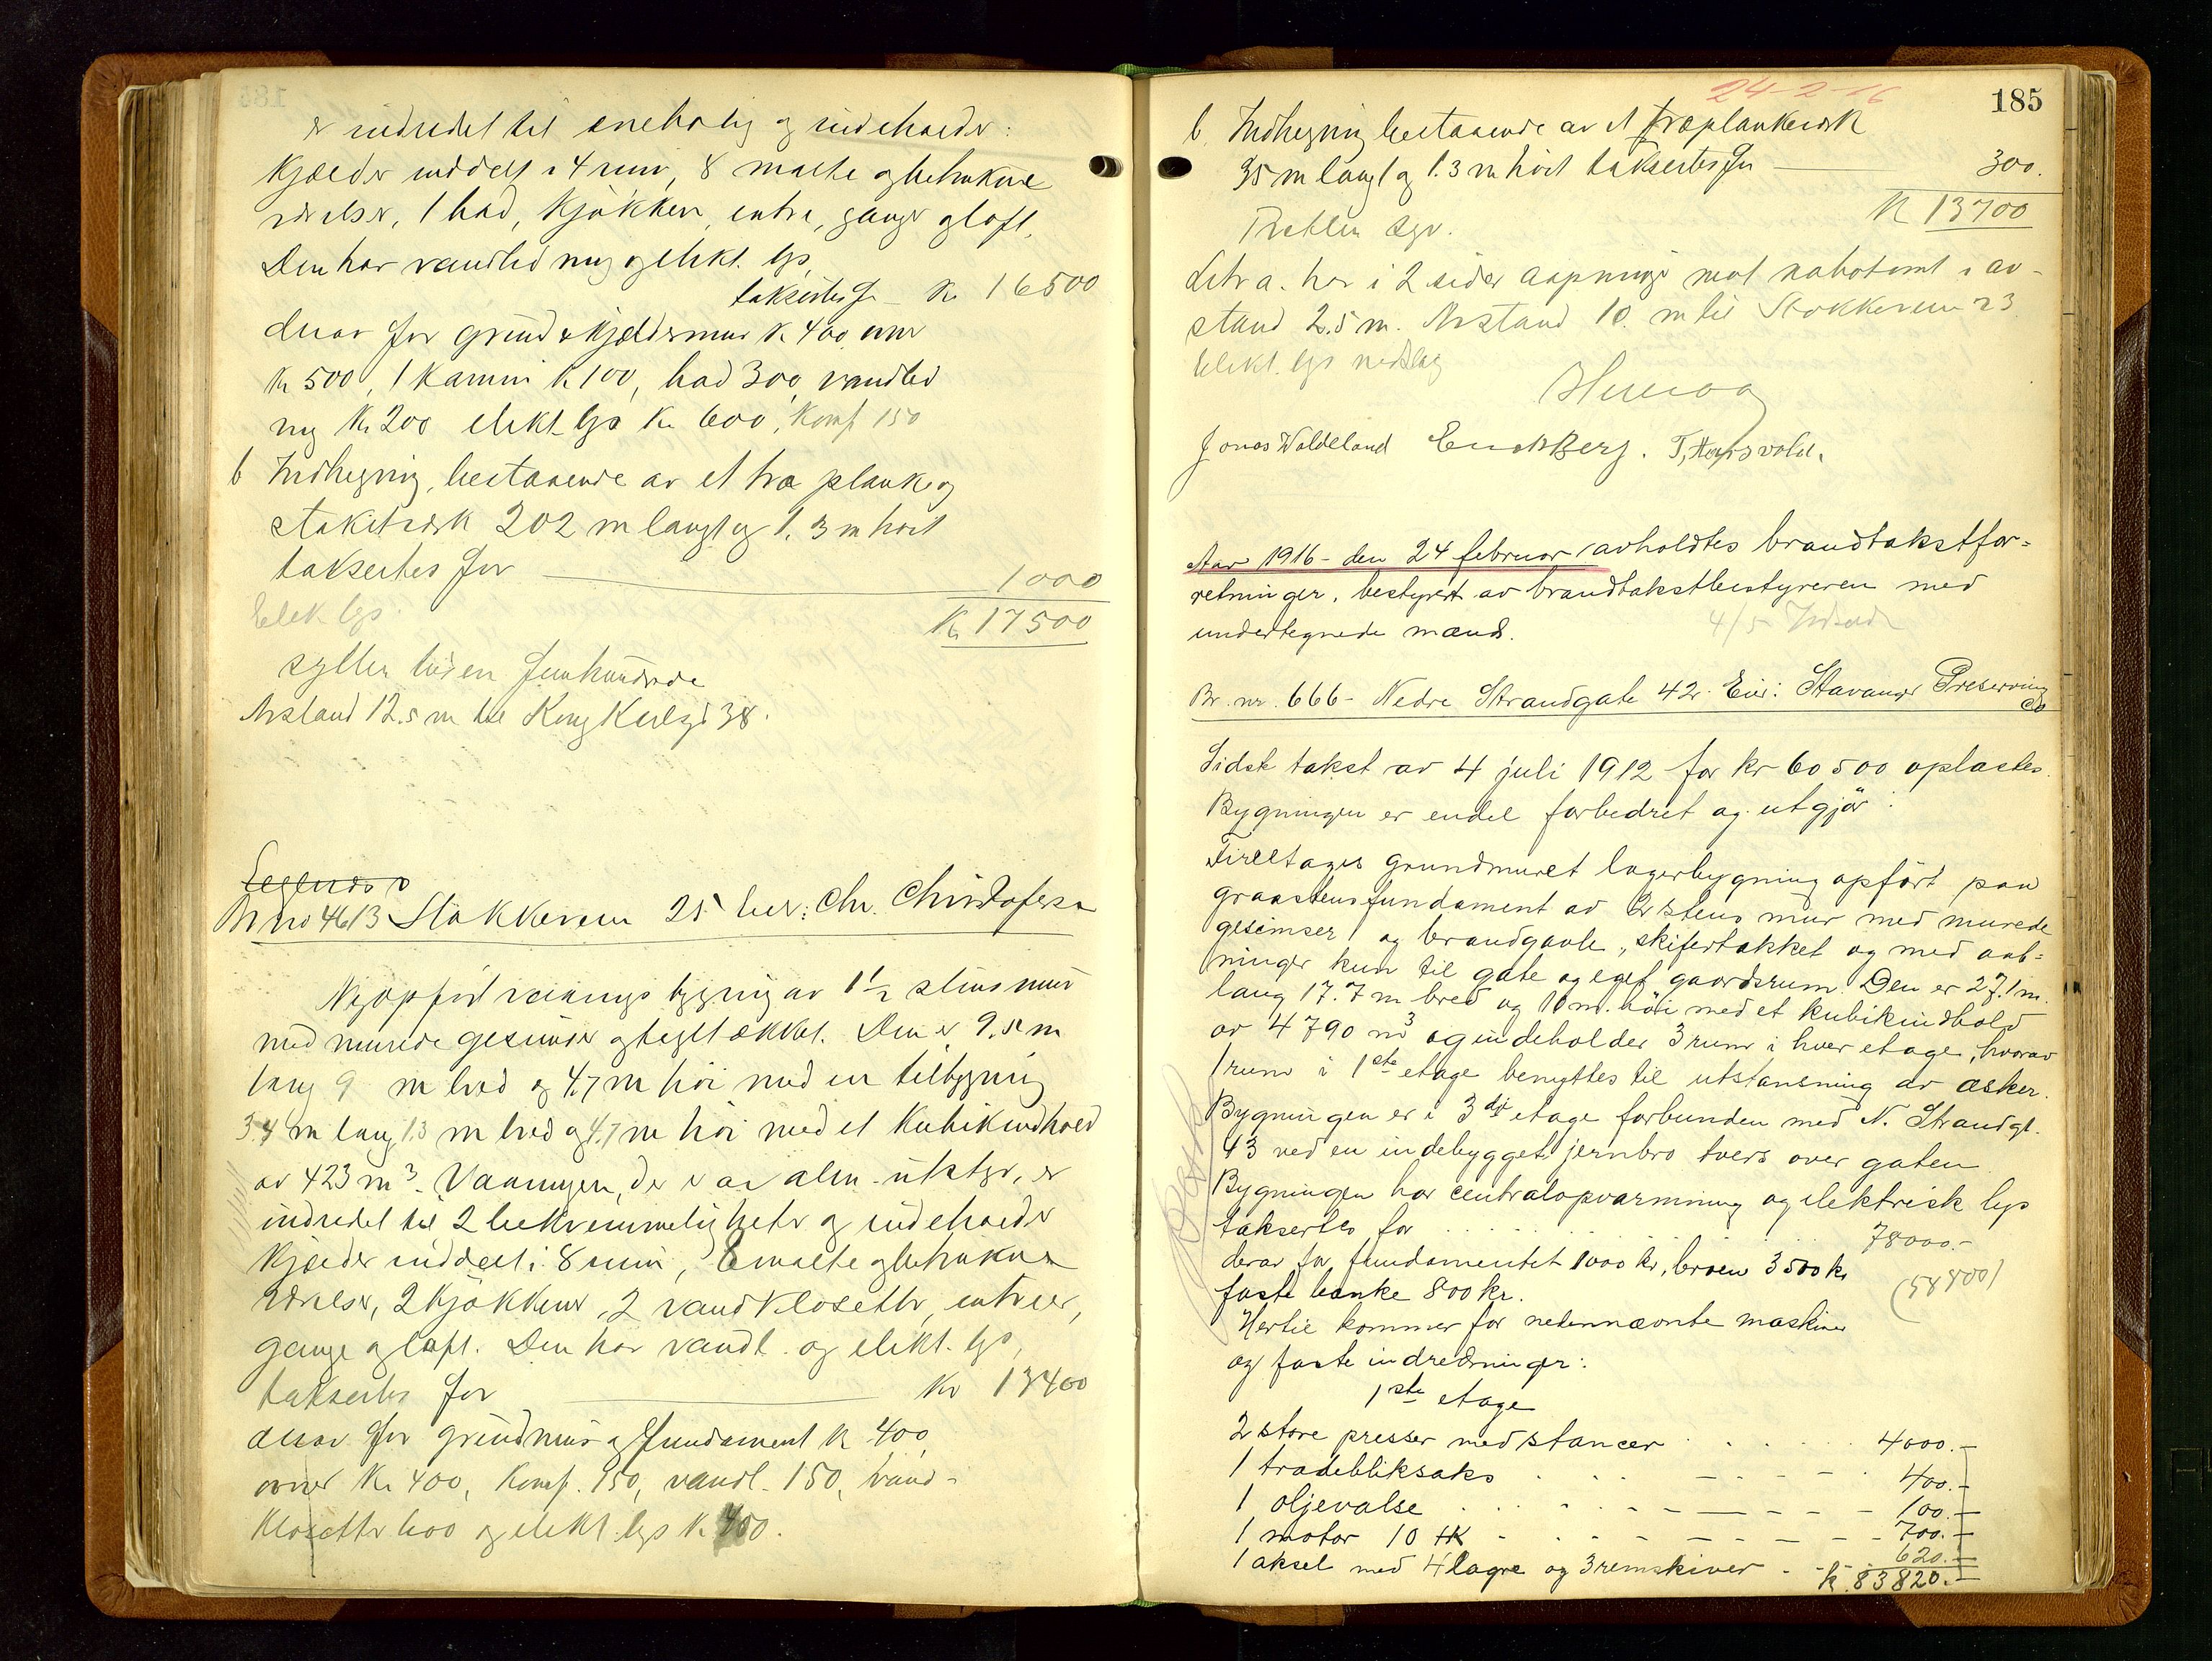 er indredet til enebolig og indeholder:
Kjælder inddelt i 4 rum, 8 malte og betrukne
værelser, 1 bad, kjøkken, entre, gange og loft.
Den har vandledning og elekt. lys
taksertes for Kr 16500
derav for grund & kjældermur Kr 400, ovner
Kr 500, 1 Kamin Kr 100, bad 300, vandled
ning Kr 200 elekt. lys Kr 600, Komf 150
b Indhegning, bestaaende av et træ planke og
stakitværk 202 m langt og 1.3 m höit
taksertes for 1000
Elek lys. Kr 17500
sytten tusen femhundrede
Avstand 12.5 m til Kong Karlsgt 38.
Br no 4613 Stokkaveien 25 Eier: Chr. Christofersen
Nyopført vaaningsbygning av 1 1/2 stens mur
med murede gesimser og tegltækket. Den er 9.5 m
lang 9 m bred og 4.7 m höi med en tilbygning
3.4 m lang 1.3 m bred og 4.7 m höi med et Kubikindhold
av 423 m3. Vaaningen, der er av alm. utstyr, er
indredet til 2 bekvemmeligheter og indeholder
Kjælder inddelt i 8 rum, 6 malte og betrukne
værelser, 2 kjøkkener, 2 vandklosetter, entreer,
gange og loft. Den har vandl. og elekt. lys,
taksertes for Kr 13400
derav for grundmur og fundament Kr 400,
ovner Kr 400, Komf. 150, vandl. 150, vand-
klosetter 600 og elekt. lys Kr 400.
24-2-16
185
b. Indhegning bestaaende av et træplankeværk
35 m langt og 1.3 m höit taksertes for 300.
Kr 13700
Tretten syv.
Litra a. har i 2 sider aapninger mot nabotomt i av-
stand 2.5 m. Avstand 10. m til Stokkaveien 23.
elekt. lys nedslag
Jonas Waldeland Erik Berg. T, Hognsvold.
Aar 1916 - den 24 februar avholdtes brandtakstfor=
retninger, bestyret av brandtakstbestyreren med
undertegnede mænd.
Br. nr. 666 - Nedre Strandgate 42. Eier: Stavanger Preserving
Co
Sidste takst av 4 juli 1912 for kr 60500 oplæstes.
Bygningen er endel forbedret og utgjör:
Fireetages grundmuret lagerbygning opfört paa
graastensfundament av 2 stens mur med murede
gesimser og brandgavle, skifertækket og med aab=
ninger kun til gate og eget gaardsrum. Den er 27.1 m.
lang 17.7 m bred og 10 m. höi med et kubikindhold
av 4790 m3 og indeholder 3 rum i hver etage, hvorav
1 rum i 1ste etage benyttes til utstansning av æsker.
Bygningen er i 3dje etage forbunden med N. Strandgt.
43 ved en indebygget jernbro tvers over gaten.
Bygningen har centralopvarmning og elektrisk lys
taksertes for 78000.-
derav for fundamentet 1000 kr, broen 3500 kr
faste bænke 800 kr.
Hertil kommer for nedennævnte maskiner
og faste indredninger:
1ste etage
2 store presser med stancer 4000.-
1 trødebliksaks 400.-
1 oljevalse 100.-
1 motor 10 HK 700.-
1 aksel med 4 lagre og 3 remskiver 620.-
Kr. 83820.-